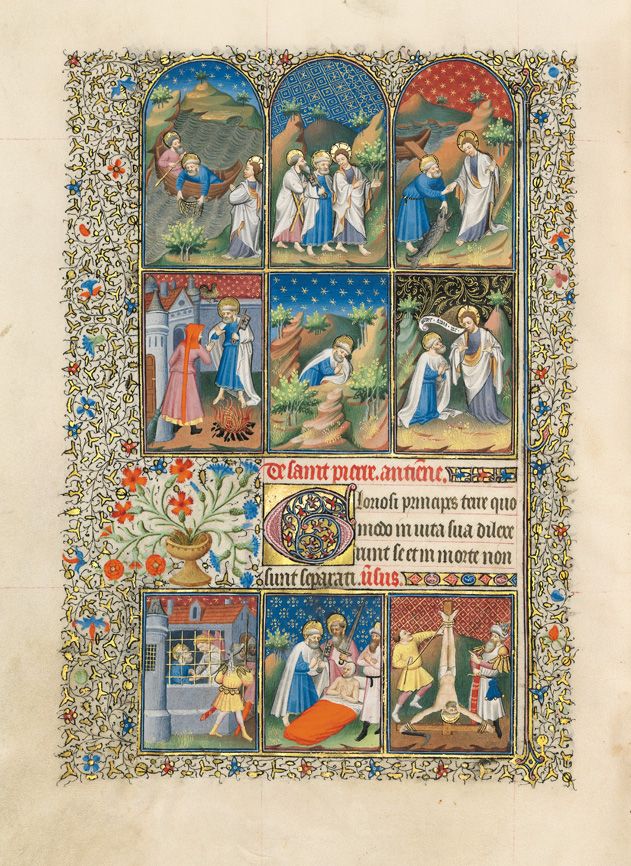 De saint pierre. antiene.
Gloriosi principes terre quo
modo in uita sua dilexe
runt se et in morte non
sunt separati. v̄sus.